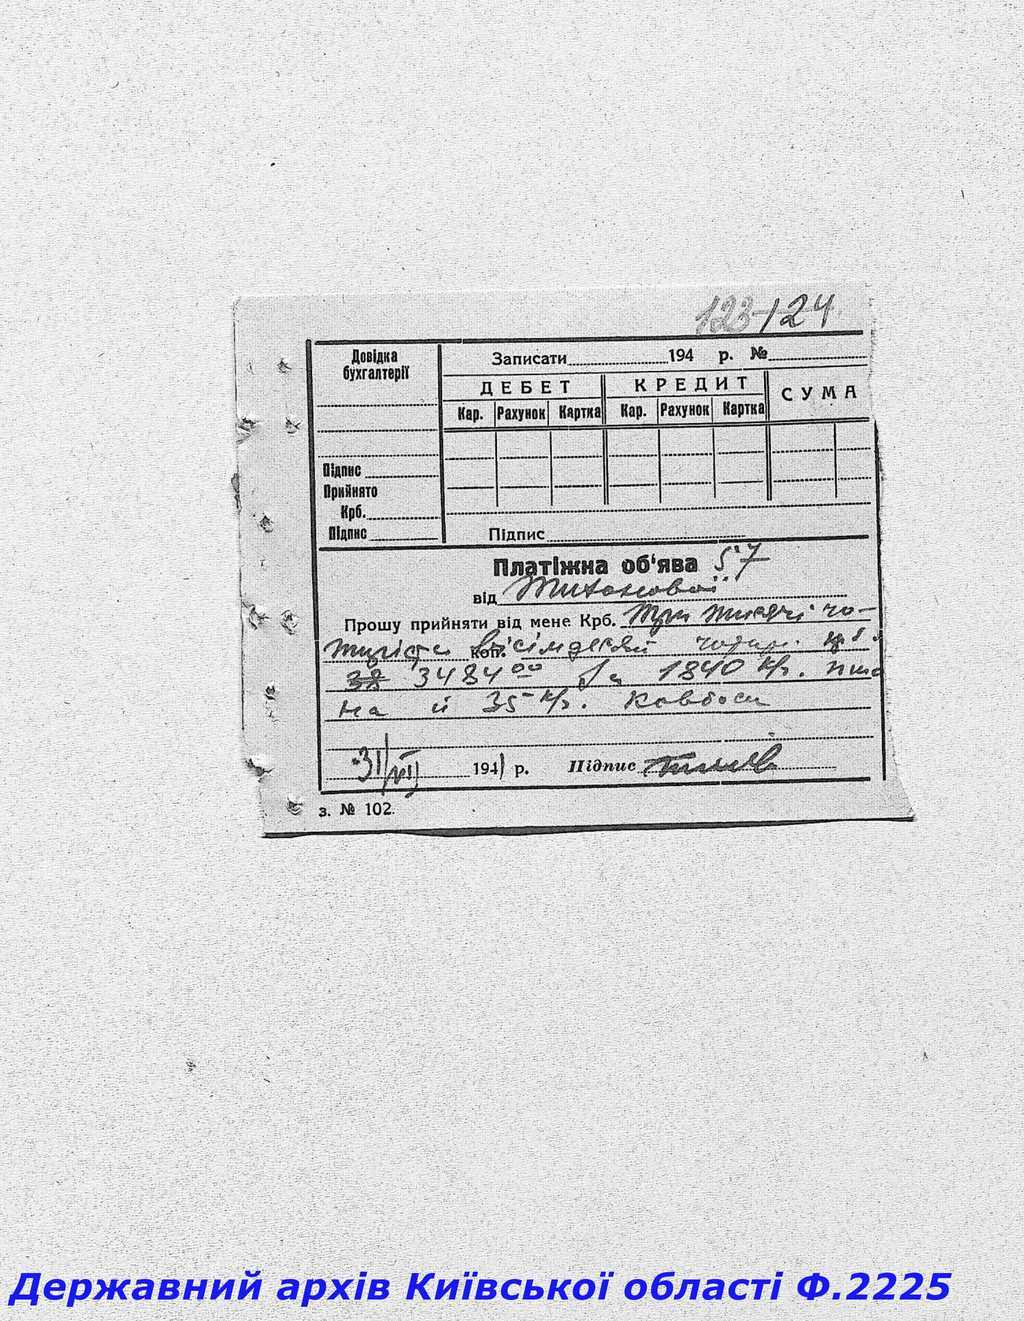 123-124
Довідка
бухгалтерії
Записати 194 р. №
ДЕБЕТ КРЕДИТ СУМА
Кар. Рахунок Картка Кар. Рахунок Картка
Підпис
Прийнято
Крб.
Підпис
Підпис
Платіжна об'ява 57
від
Прошу прийняти від мене Крб. Три тисячі чо-
тиріста коп. вісімдесят чотири
3484 00 за 1840 кг. пшо
на й 35 кг. Ковбаси
31/VII 1941 р. Підпис
з. № 102.
Державний архів Київської області Ф.2225